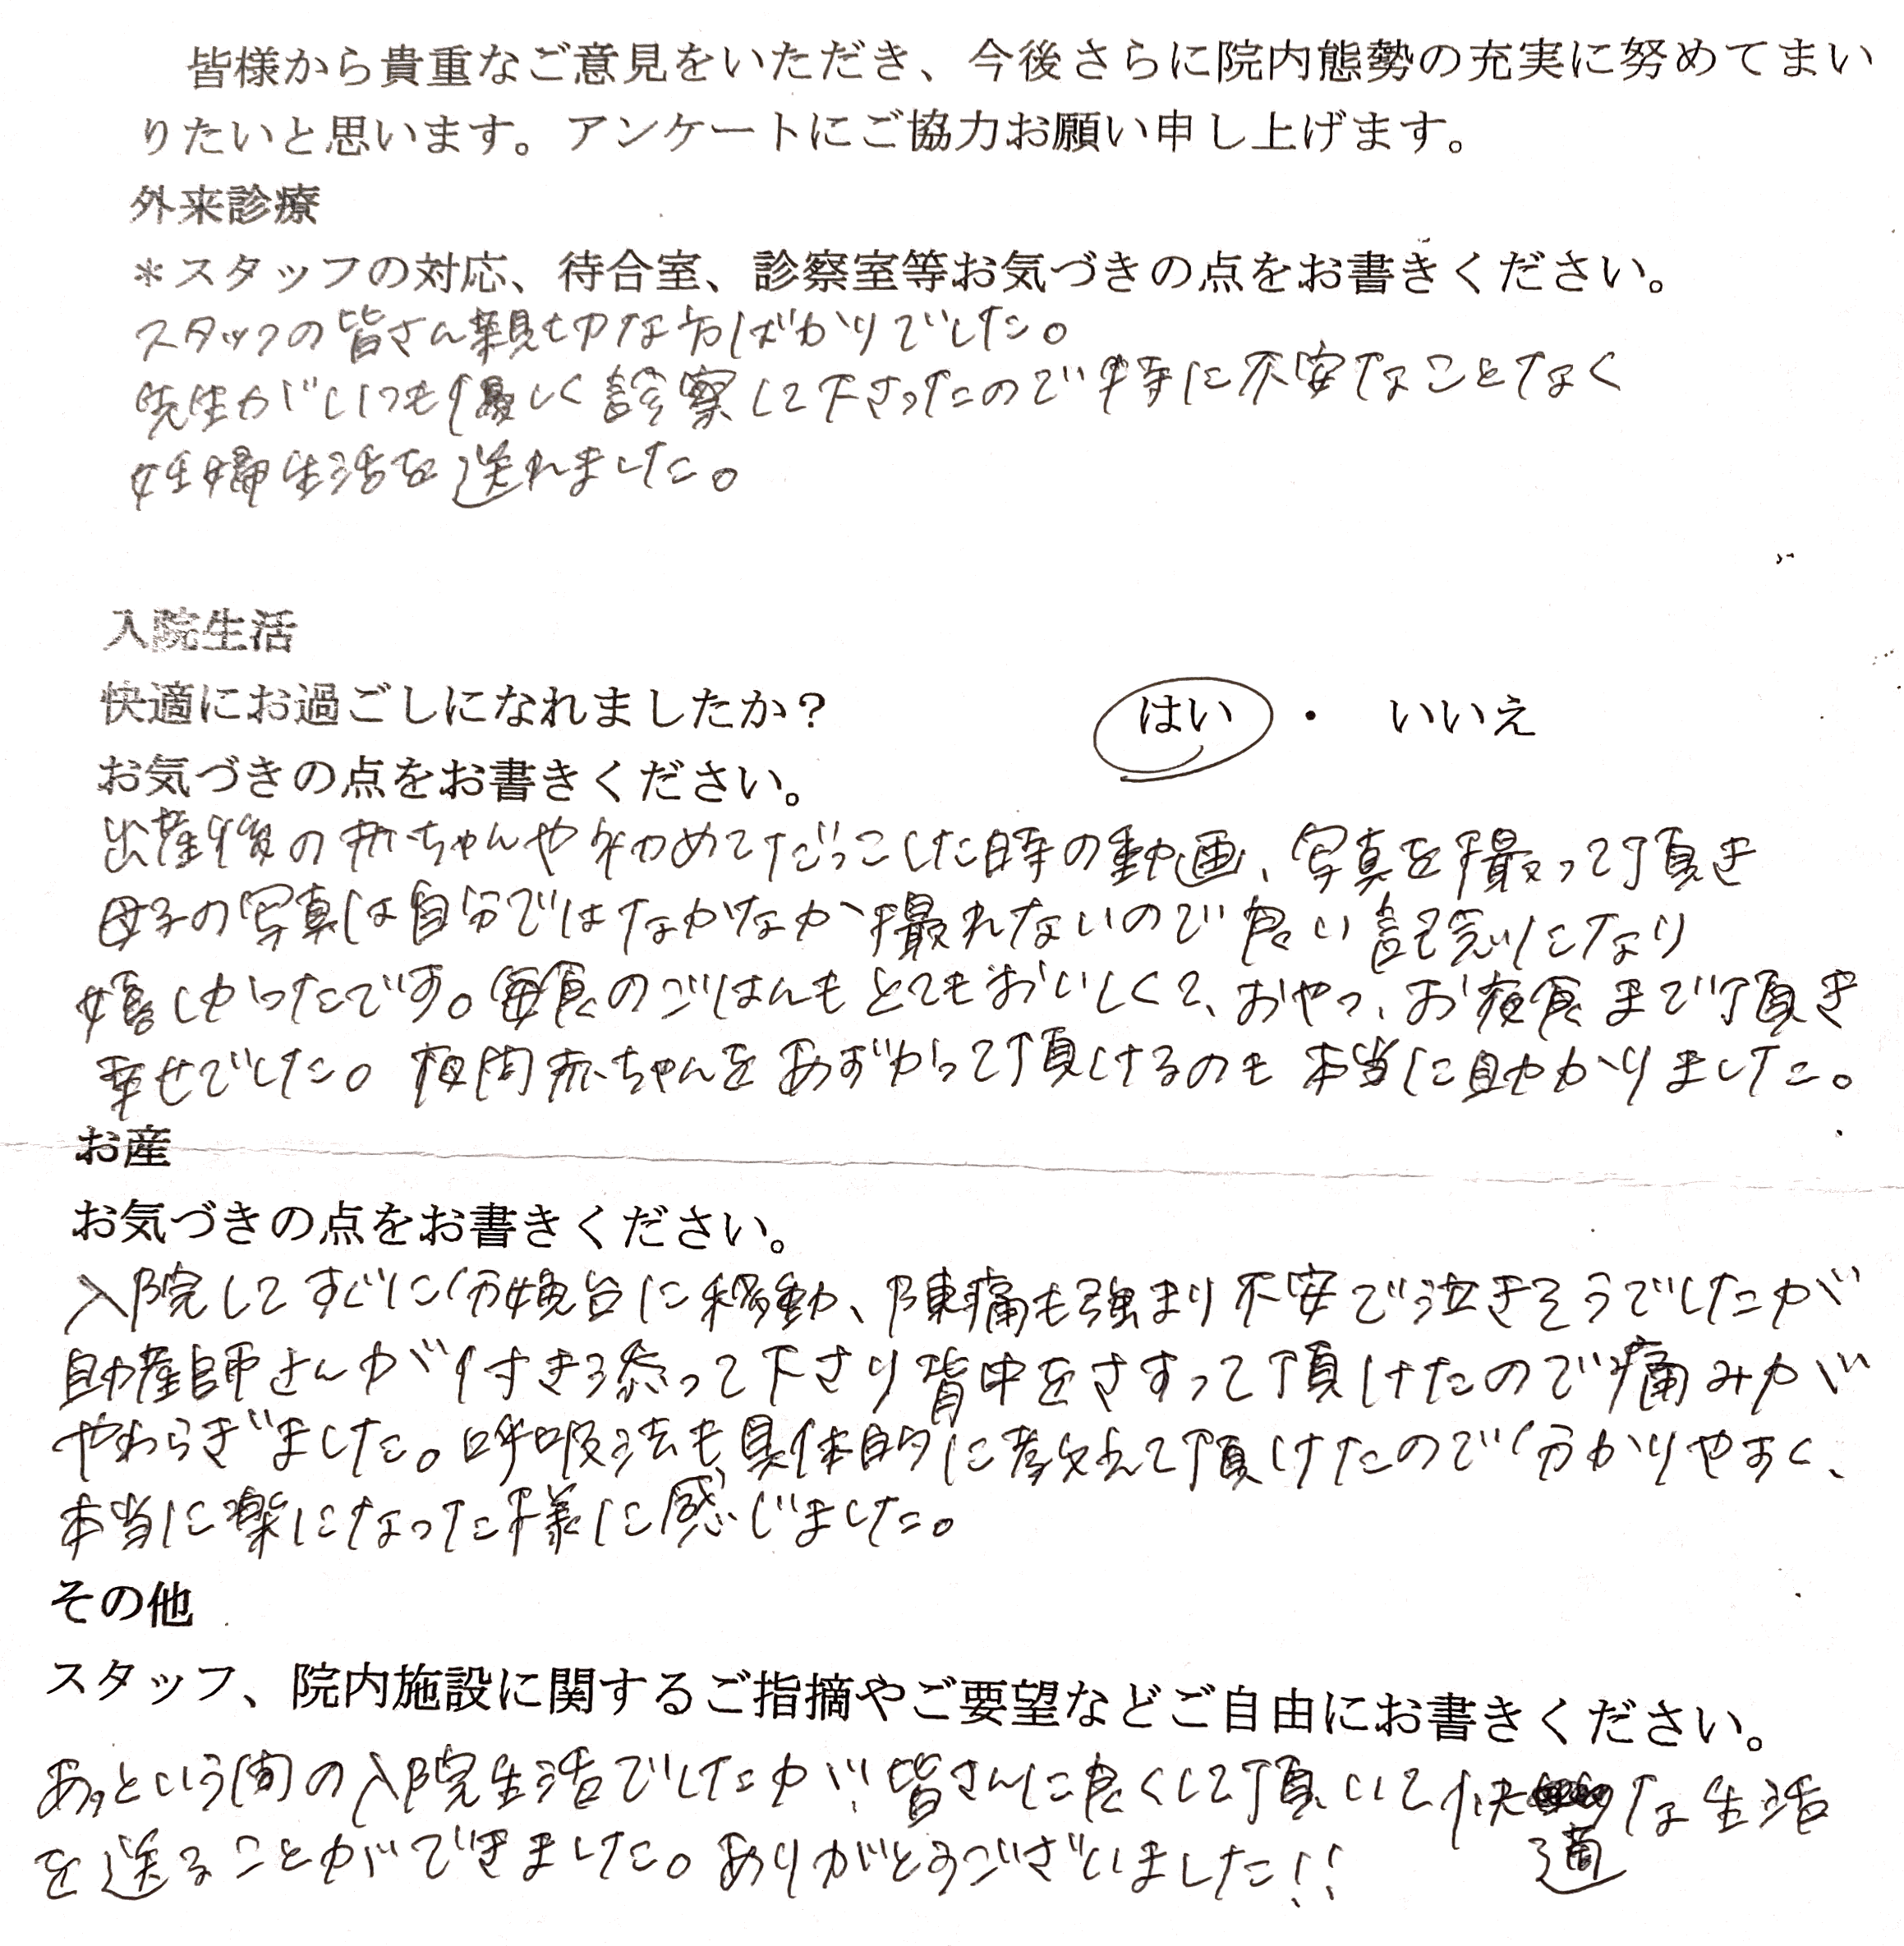 皆様から貴重なご意見をいただき、今後さらに院内態勢の充実に努めてまい
りたいと思います。アンケートにご協力お願い申し上げます。
外来診療
＊スタッフの対応、待合室、診察室等お気づきの点をお書きください。
スタッフの皆さん親切な方ばかりでした。
先生がいつも優しく診察して下さったので特に不安なことなく
妊婦生活を送れました。
入院生活
快適にお過ごしになれましたか？ はい ・ いいえ
お気づきの点をお書きください。
出産後の赤ちゃんや初めてだっこした時の動画、写真を撮って頂き
母子の写真は自分ではなかなか撮れないので良い記念になり
嬉しかったです。毎食のごはんもとてもおいしくて、おやつ、お夜食まで頂き
幸せでした。夜間赤ちゃんをあずかって頂けるのも本当に助かりました。
お産
お気づきの点をお書きください。
入院してすぐに分娩台に移動、陣痛も強まり不安で泣きそうでしたが
助産師さんが付き添って下さり背中をさすって頂けたので痛みが
やわらぎました。呼吸法も具体的に教えて頂けたので分かりやすく、
本当に楽になった様に感じました。
その他
スタッフ、院内施設に関するご指摘やご要望などご自由にお書きください。
あっという間の入院生活でしたが、皆さんに良くして頂いて快適な生活
を送ることができました。ありがとうございました!!